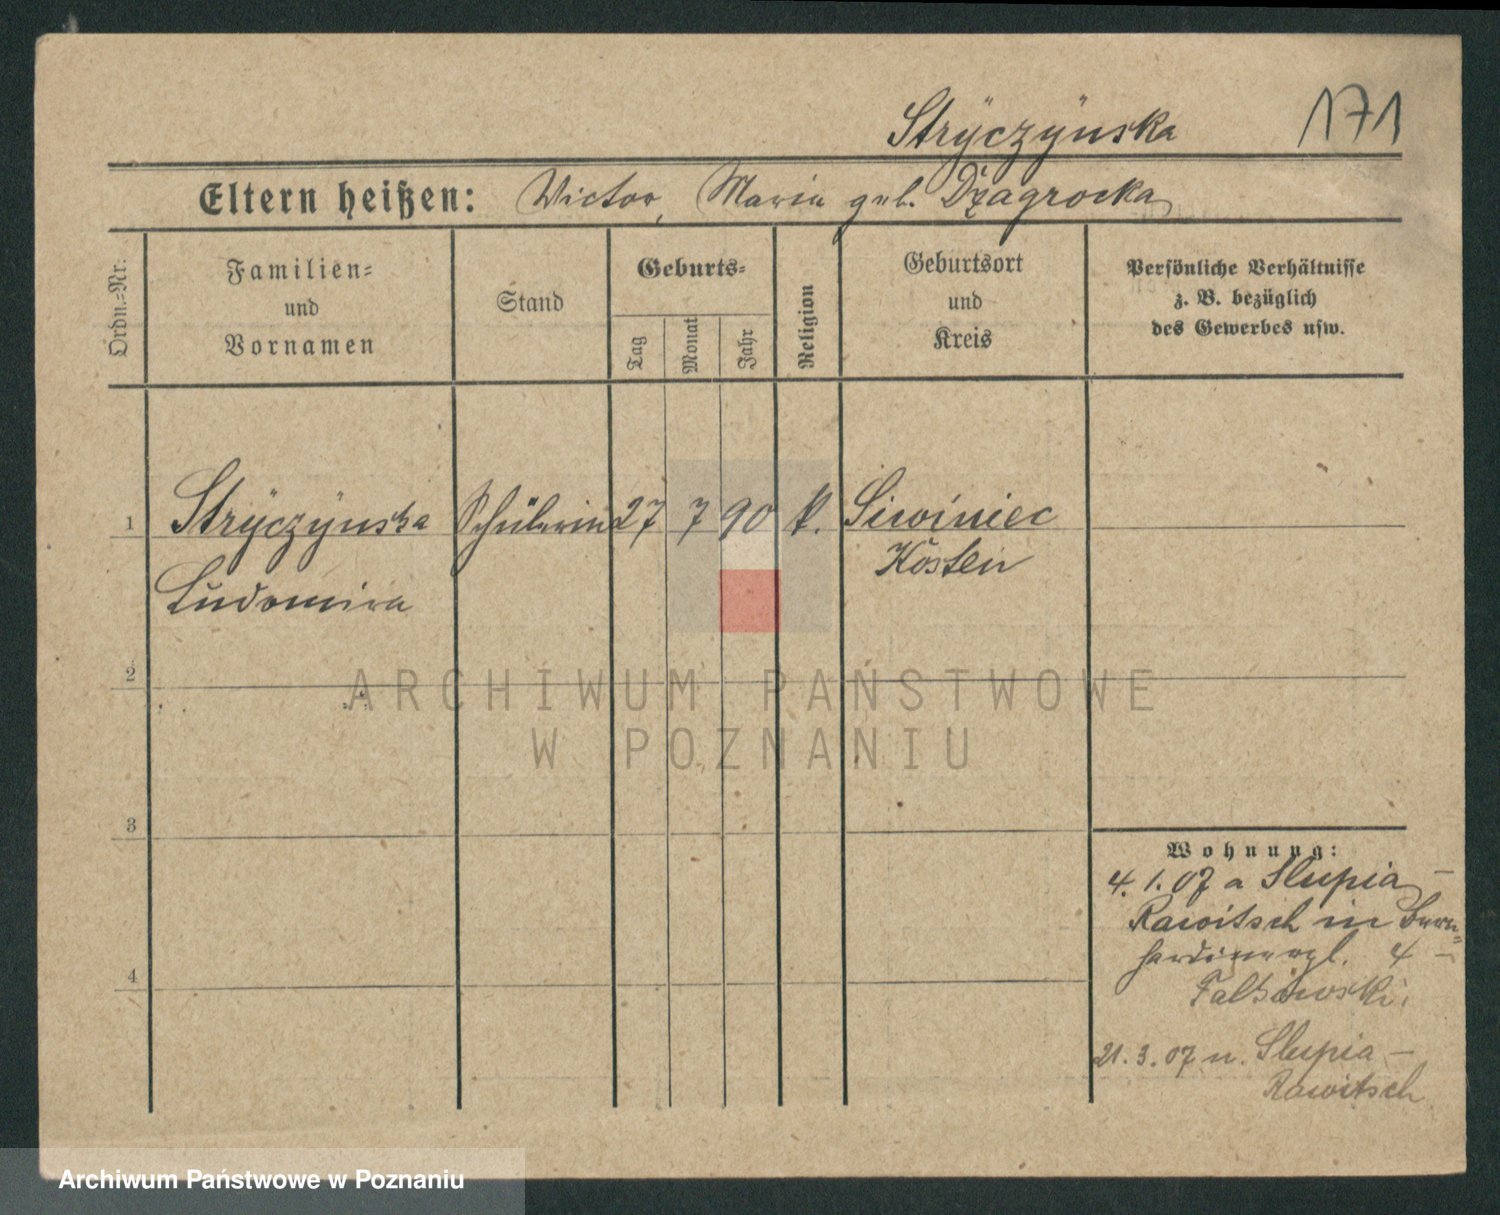 Strÿczÿnska 171
Eltern heißen: Victor, Maria geb. Dzagrocka
Ordn.=Nr.
Familien=
und
Vornamen
Stand
Geburts=
Tag
Monat
Jahr
Religion
Geburtsort
und
Kreis
Persönliche Verhältnisse
z. B. bezüglich
des Gewerbes usw.
1 Strÿczÿnska Schülerin 27 7 90 k. Siwiniec
Kosten
Ludomira
2
ARCHIWUM PAŃSTWOWE
W POZNANIU
3
Wohnung:
4. 1. 07 a Slupia –
Rawitsch in Bern=
hardinerpl. 4 –
4
21. 3. 07 n. Slupia –
Rawitsch
Archiwum Państwowe w Poznaniu